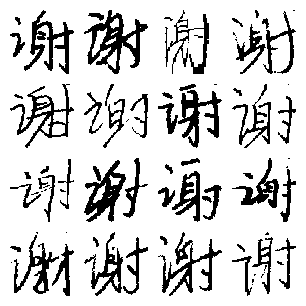 谢谢谢谢
谢谢谢谢
谢谢谢谢
谢谢谢谢